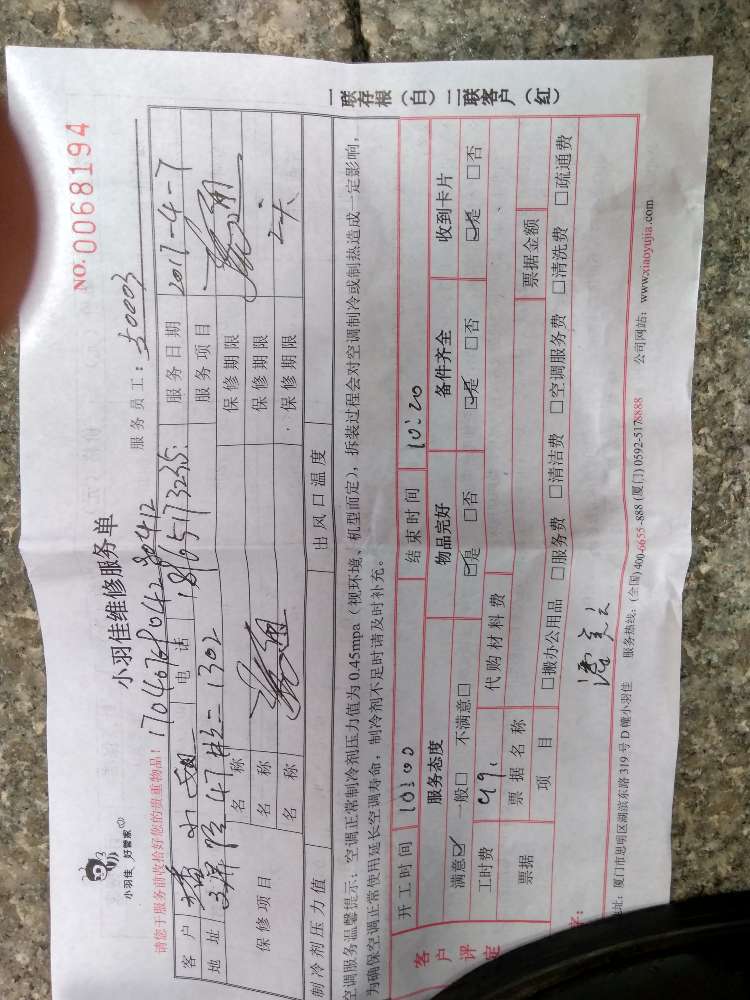 NO.0068194
小羽佳 好管家
小羽佳维修服务单
服务员工：50003
请您于服务前收拾好您的贵重物品！
客户 电话 18965173235 服务日期 2017-4-7
地址 47 1302 服务项目
保修项目 名称 保修期限
名称 保修期限
名称 保修期限
制冷剂压力值 出风口温度
空调服务温馨提示：空调正常制冷剂压力值为0.45mpa（视环境、机型而定），拆装过程会对空调制冷或制热造成一定影响，
为确保空调正常使用延长空调寿命，制冷剂不足时请及时补充。
开工时间 10:00 结束时间 10:20
客户评定 服务态度 物品完好 备件齐全 收到卡片
满意☑ 一般□ 不满意□ ☑是 □否 ☑是 □否 ☑是 □否
工时费 49. 代购材料费
票据 票据名称 票据金额
项目 □搬办公用品 □服务费 □清洁费 □空调服务费 □清洗费 □疏通费
地址：厦门市思明区湖滨东路319号D幢小羽佳 服务热线：(全国)400-6655-888 (厦门)0592-5178888 公司网站：www.xiaoyujia.com
一联存根（白）二联客户（红）